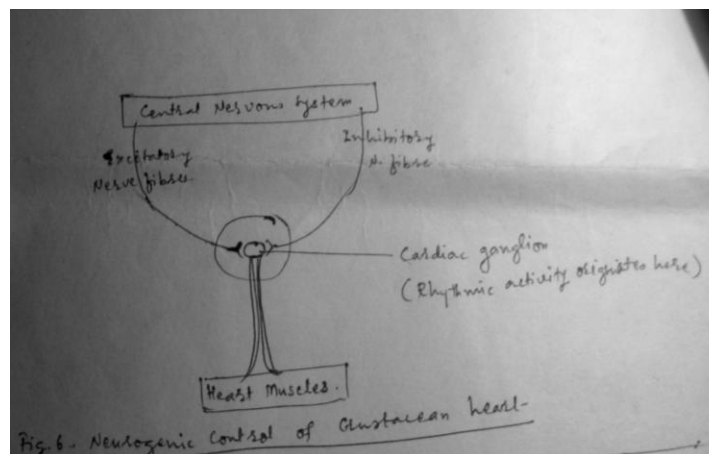 Central Nervous System
Excitatory
Nerve fibre
Inhibitory
N. fibre
Cardiac ganglion
(Rhythmic activity originates here)
Heart Muscles.
Fig. 6. Neurogenic Control of Crustacean heart